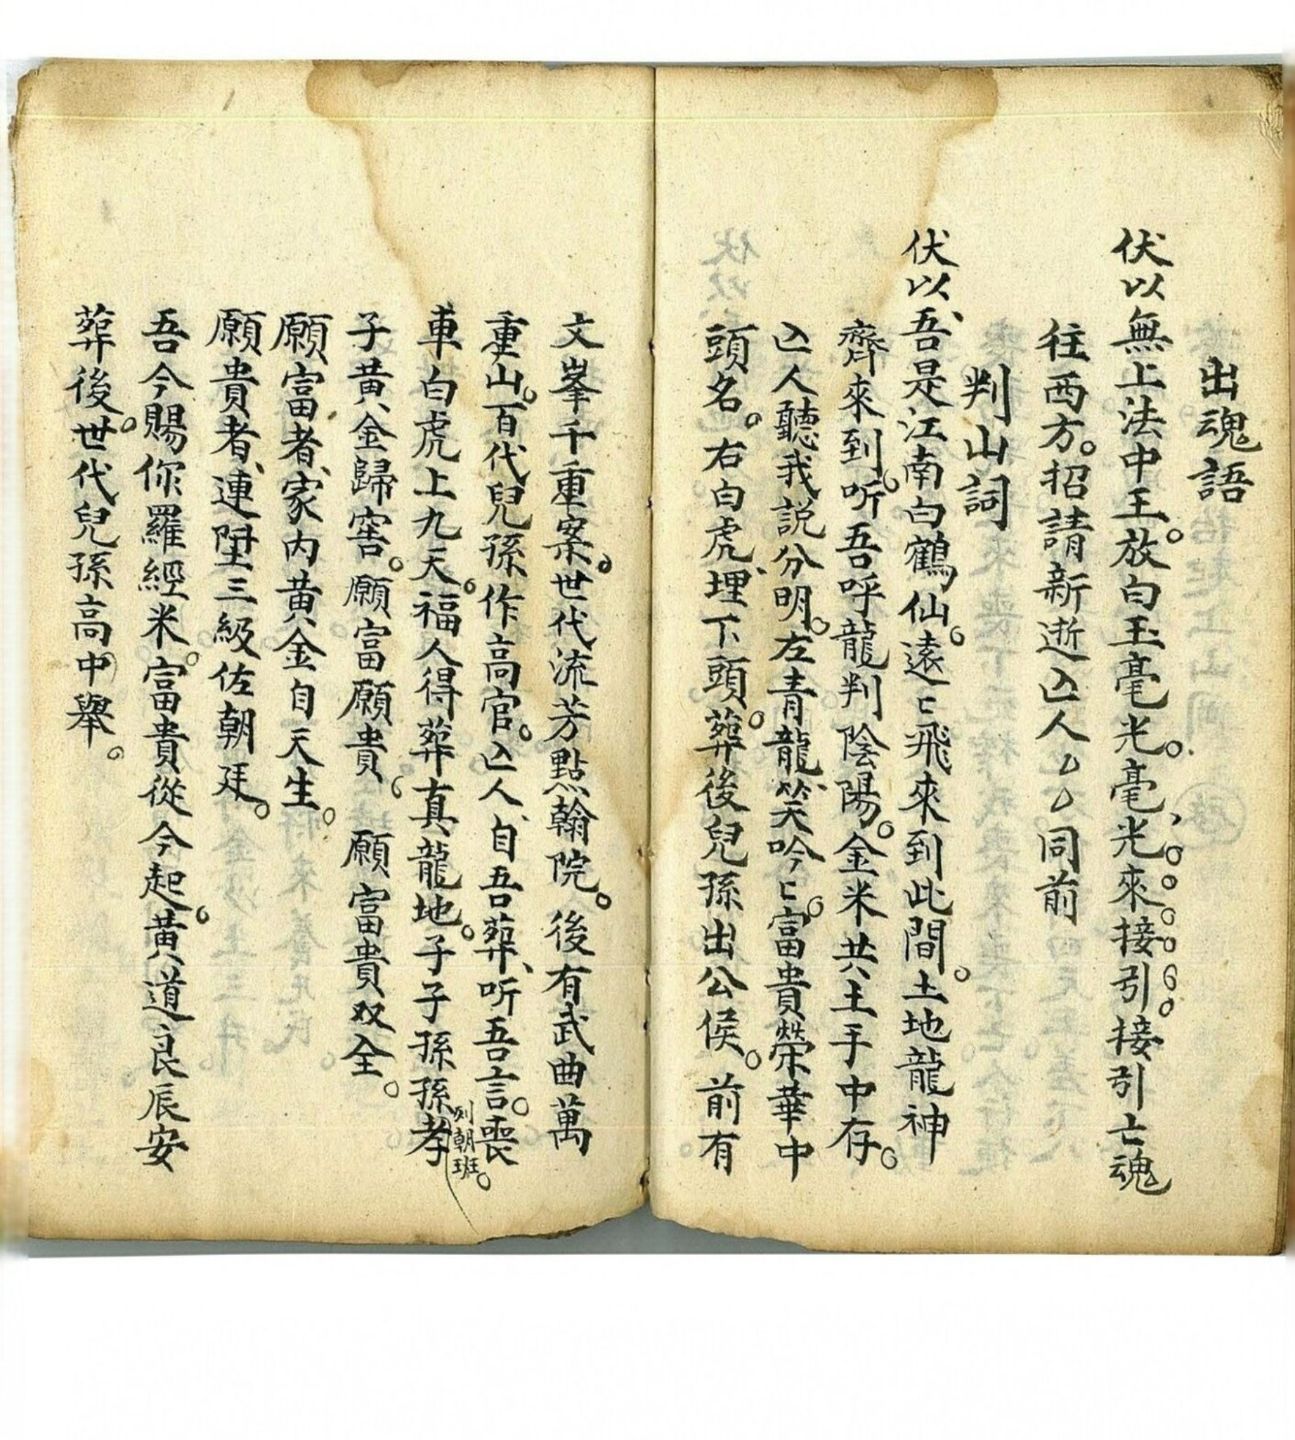 出魂語
伏以無上法中王。放白玉毫光。毫、光。來。接引。接引亡魂
往西方。招請新逝亾人〻〻同前
判山詞
伏以、吾是江南白鶴仙。遠〻飛來到此間。土地龍神
齊來到。听吾呼龍判陰陽。金米共土手中存。
亾人聽我説分明。左青龍、笑吟〻。富貴荣華中
頭名。右白虎、埋下頭。葬後兒孫出公侯。前有
文峯千重案。世代流芳點翰院。後有武曲萬
重山。百代兒孫作高官。亾人、自吾葬、听吾言。喪
車白虎上九天。福人得葬真龍地。子子孫孫孝
列朝班。
子黄金歸窖。願富願貴。願富貴双全。
願富者、家内黄金自天生。
願貴者、連陞三級佐朝廷。
吾今賜你羅經米。富貴從今起。黄道良辰安
葬後。世代兒孫高中舉。